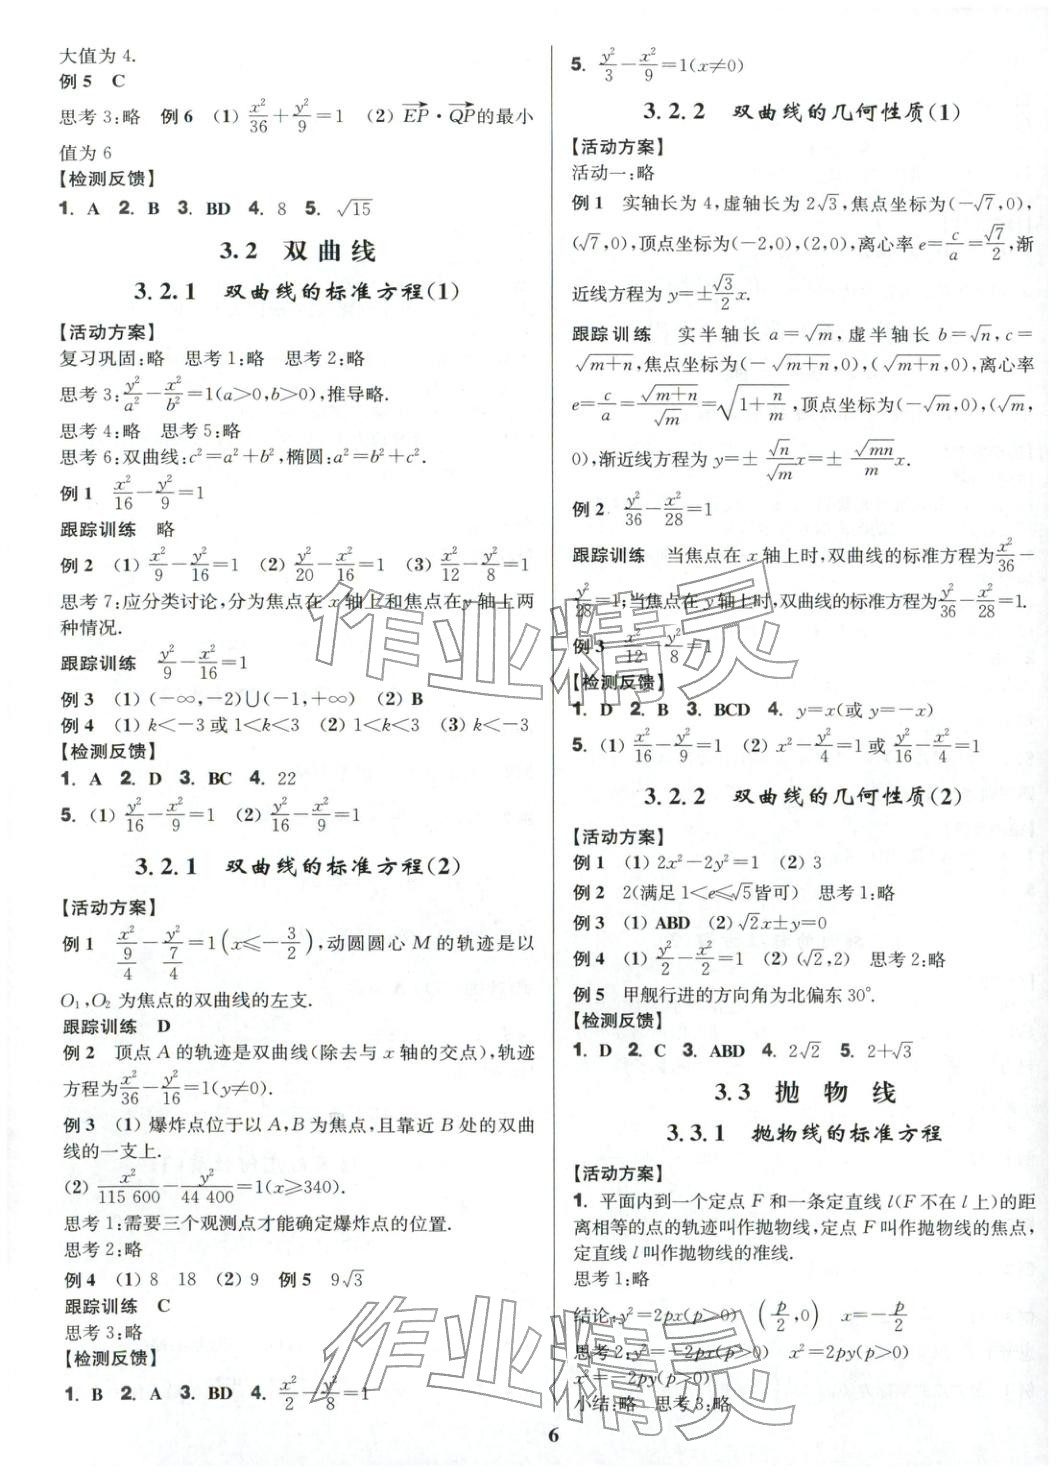 大值为 4.
例 5　C
思考 3:略　例 6　(1) x²/36+y²/9=1　(2) EP→·QP→的最小
值为 6
【检测反馈】
1. A　2. B　3. BD　4. 8　5. √15
3.2　双 曲 线
3.2.1　双曲线的标准方程(1)
【活动方案】
复习巩固:略　思考 1:略　思考 2:略
思考 3:y²/a²−x²/b²=1(a>0,b>0),推导略.
思考 4:略　思考 5:略
思考 6:双曲线:c²=a²+b²,椭圆:a²=b²+c².
例 1　x²/16−y²/9=1
跟踪训练　略
例 2　(1) x²/9−y²/16=1　(2) y²/20−x²/16=1　(3) x²/12−y²/8=1
思考 7:应分类讨论,分为焦点在 x 轴上和焦点在 y 轴上两
种情况.
跟踪训练　y²/9−x²/16=1
例 3　(1) (−∞,−2)∪(−1,+∞)　(2) B
例 4　(1) k<−3 或 1<k<3　(2) 1<k<3　(3) k<−3
【检测反馈】
1. A　2. D　3. BC　4. 22
5. (1) y²/16−x²/9=1　(2) y²/16−x²/9=1
3.2.1　双曲线的标准方程(2)
【活动方案】
例 1　x²/(9/4)−y²/(7/4)=1(x≤−3/2),动圆圆心 M 的轨迹是以
O₁,O₂ 为焦点的双曲线的左支.
跟踪训练　D
例 2　顶点 A 的轨迹是双曲线(除去与 x 轴的交点),轨迹
方程为x²/36−y²/16=1(y≠0).
例 3　(1) 爆炸点位于以 A,B 为焦点,且靠近 B 处的双曲
线的一支上.
(2) x²/115 600−y²/44 400=1(x≥340).
思考 1:需要三个观测点才能确定爆炸点的位置.
思考 2:略
例 4　(1) 8　18　(2) 9　例 5　9√3
跟踪训练　C
思考 3:略
【检测反馈】
1. B　2. A　3. BD　4. x²/2−y²/8=1
5. y²/3−x²/9=1(x≠0)
3.2.2　双曲线的几何性质(1)
【活动方案】
活动一:略
例 1　实轴长为 4,虚轴长为 2√3,焦点坐标为(−√7,0),
(√7,0),顶点坐标为(−2,0),(2,0),离心率 e=c/a=√7/2,渐
近线方程为 y=±√3/2x.
跟踪训练　实半轴长 a=√m,虚半轴长 b=√n,c=
√(m+n),焦点坐标为(−√(m+n),0),(√(m+n),0),离心率
e=c/a=√(m+n)/√m=√(1+n/m),顶点坐标为(−√m,0),(√m,
0),渐近线方程为 y=±√n/√m x=±√(mn)/m x.
例 2　y²/36−x²/28=1
跟踪训练　当焦点在 x 轴上时,双曲线的标准方程为x²/36−
y²/28=1;当焦点在 y 轴上时,双曲线的标准方程为y²/36−x²/28=1.
例 3　x²/12−y²/8=1
【检测反馈】
1. D　2. B　3. BCD　4. y=x(或 y=−x)
5. (1) x²/16−y²/9=1　(2) x²−y²/4=1 或 y²/16−x²/4=1
3.2.2　双曲线的几何性质(2)
【活动方案】
例 1　(1) 2x²−2y²=1　(2) 3
例 2　2(满足 1<e≤√5皆可)　思考 1:略
例 3　(1) ABD　(2) √2x±y=0
例 4　(1) y²/2−x²/2=1　(2) (√2,2)　思考 2:略
例 5　甲舰行进的方向角为北偏东 30°.
【检测反馈】
1. D　2. C　3. ABD　4. 2√2　5. 2+√3
3.3　抛 物 线
3.3.1　抛物线的标准方程
【活动方案】
1. 平面内到一个定点 F 和一条定直线 l(F 不在 l 上)的距
离相等的点的轨迹叫作抛物线,定点 F 叫作抛物线的焦点,
定直线 l 叫作抛物线的准线.
思考 1:略
结论:y²=2px(p>0)　(p/2,0)　x=−p/2
思考 2:y²=−2px(p>0)　x²=2py(p>0)
x²=−2py(p>0)
小结:略　思考 3:略
6
作业精灵
作业精灵